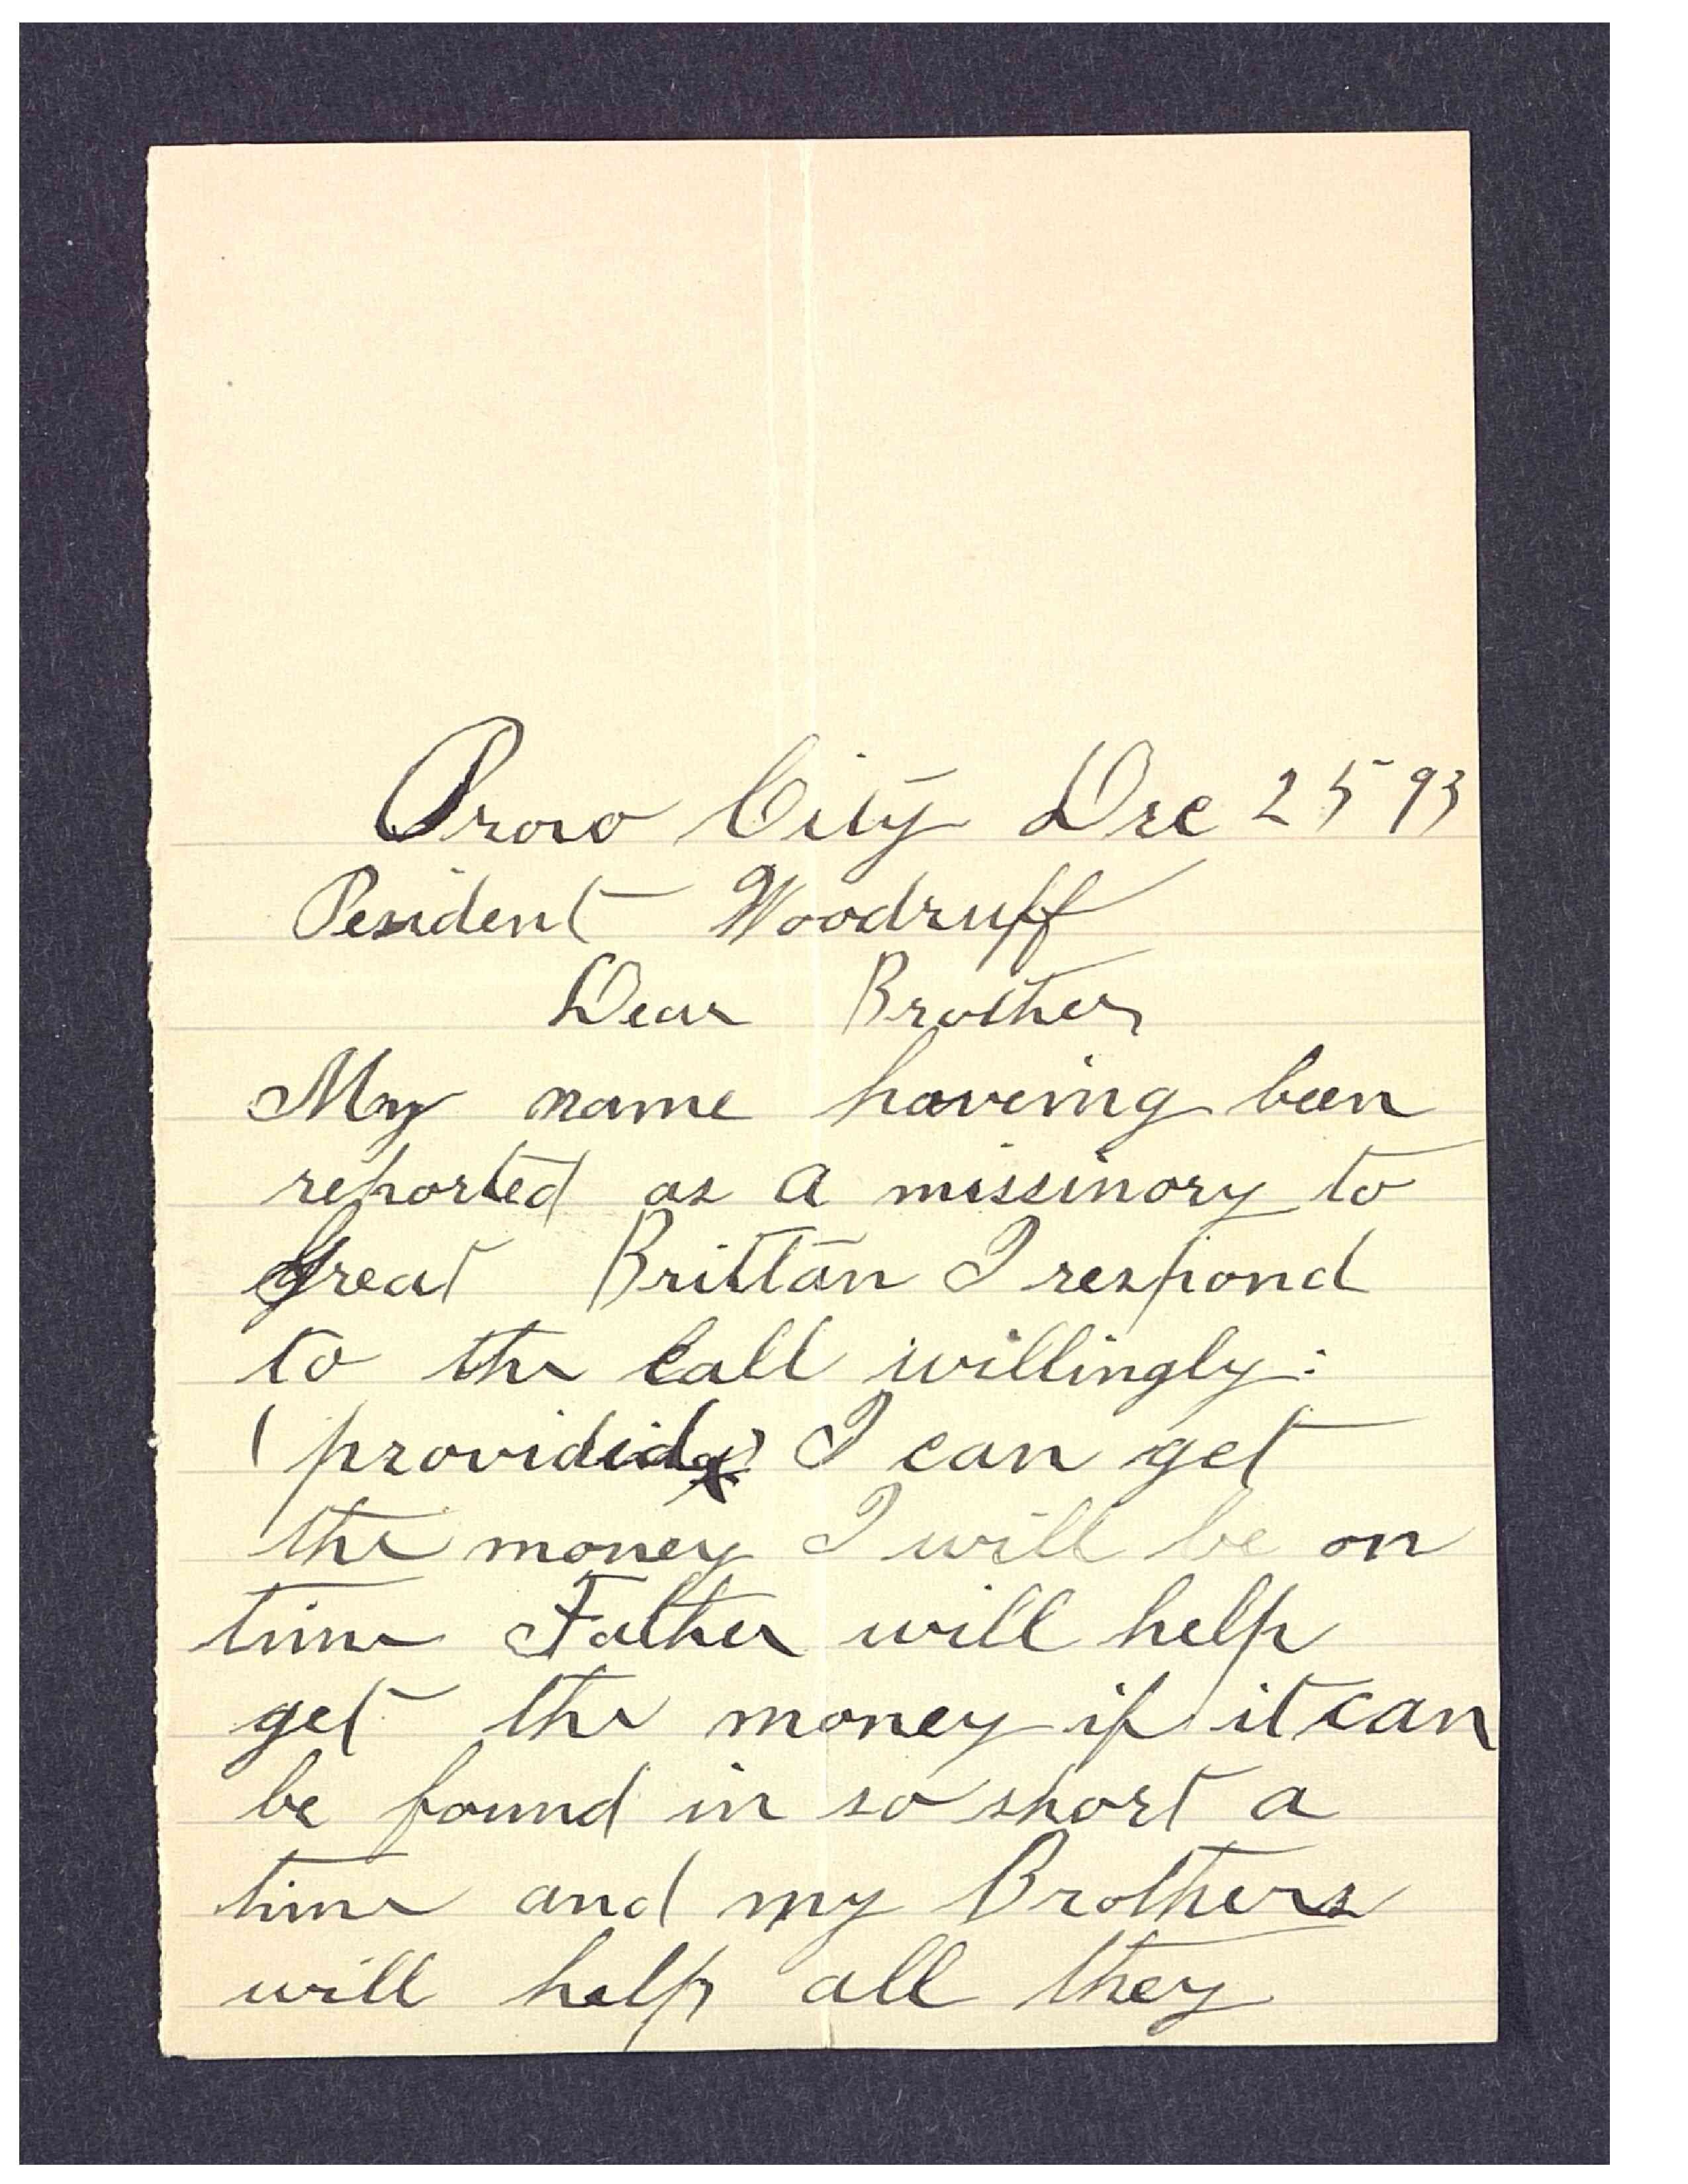 Provo City Dec 25 93
Pesident Woodruff
Dear Brother
My name haveing been
reported as a missinory to
Great Brittan I respond
to the call willingly:
(providid) I can get
the money I will be on
time Father will help
get the money if it can
be found in so short a
time and my Brothers
will help all they